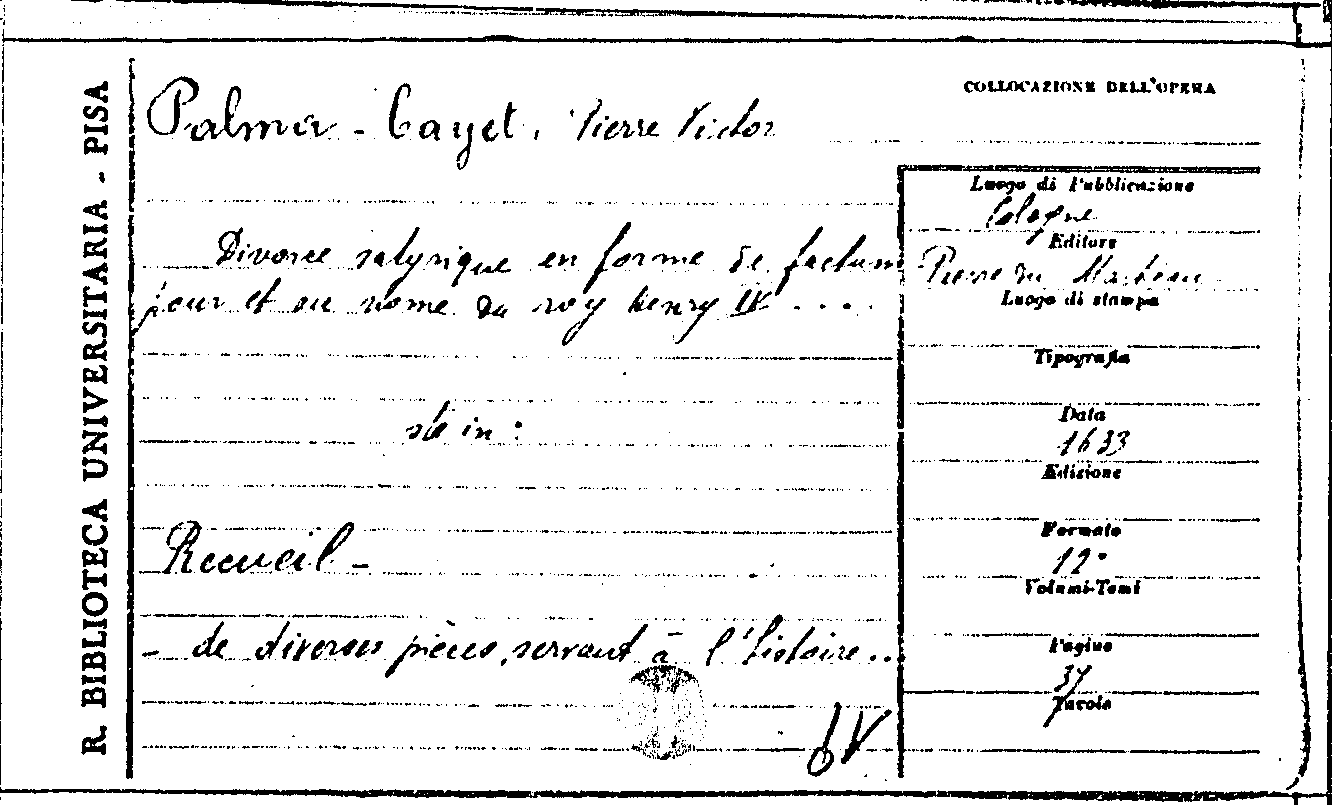 R. BIBLIOTECA UNIVERSITARIA - PISA
COLLOCAZIONE DELL'OPERA
Palma - Cayet, Pierre Victor
Divorce satyrique en forme de factum
pour et au nome du roy henry IV ....
sta in:
Recueil -
- de diverses pièces, servant à l'histoire...
Luogo di Pubblicazione
Cologne
Editore
Pierre du Marteau
Luogo di stampa
Tipografia
Data
1633
Edizione
Formato
12°
Volumi-Tomi
Pagine
Tavole